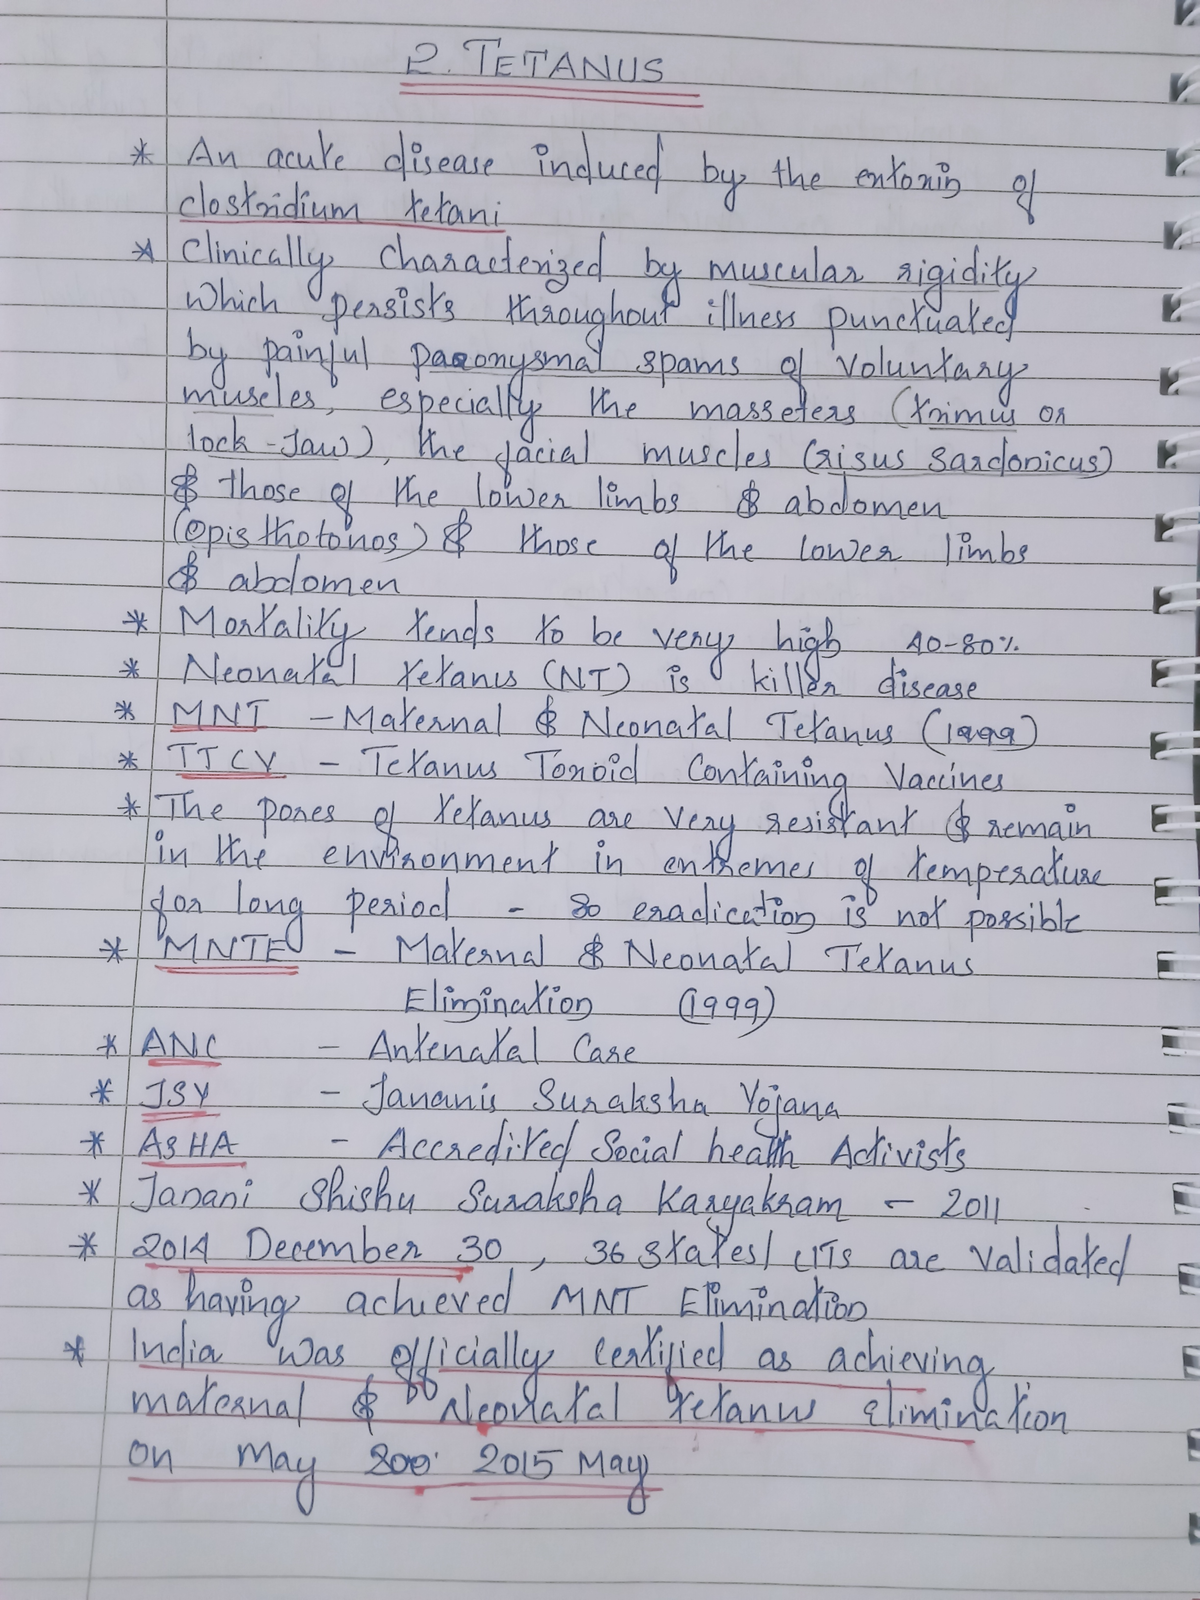 2. TETANUS
* An acute disease induced by the extoxin of
clostridium tetani
* Clinically characterized by muscular rigidity
which persists throughout illness punctuated
by painful paroxysmal spams of voluntary
muscles, especially the masseters (trimus or
lock-Jaw), the facial muscles (risus sardonicus)
& those of the lower limbs & abdomen
(opisthotonos) & those of the lower limbs
& abdomen
* Mortality tends to be very high 40-80%
* Neonatal tetanus (NT) is killer disease
* MNT - Maternal & Neonatal Tetanus (1999)
* TTCV - Tetanus Toxoid Containing Vaccines
* The pores of tetanus are very resistant & remain
in the environment in extremes of temperature
for long period - so eradication is not possible
* MNTE - Maternal & Neonatal Tetanus
Elimination (1999)
* ANC - Antenatal Care
* JSY - Jananis Suraksha Yojana
* ASHA - Accredited Social health Activists
* Janani Shishu Suraksha Karyakram - 2011
* 2014 December 30, 36 states/ UTs are validated
as having achieved MNT Elimination
* India was officially certified as achieving
maternal & Neonatal tetanus elimination
on May 200 2015 May